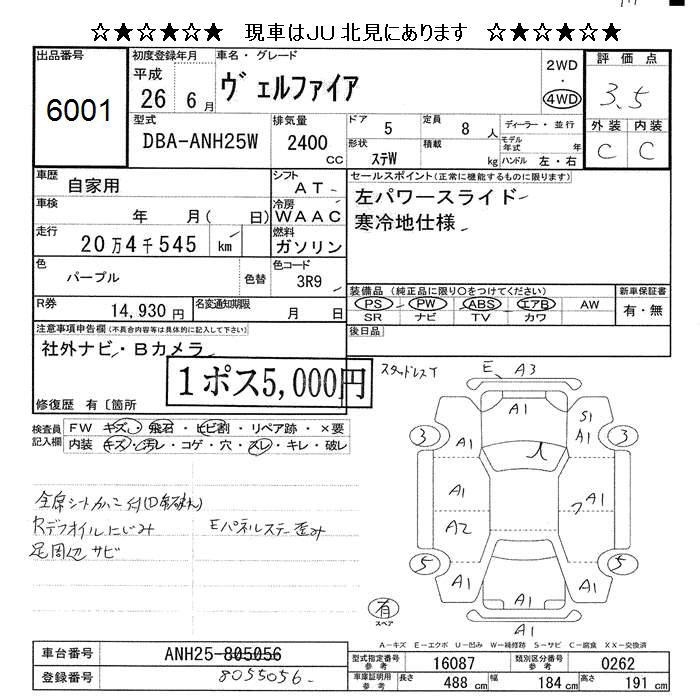 ☆★☆★☆★ 現車はJU北見にあります ☆★☆★☆★
出品番号
6001
初度登録年月
平成
26 6月
車名・グレード
ヴェルファイア
2WD
・
4WD
評価点
3.5
外装 内装
C C
型式
DBA-ANH25W
排気量
2400
cc
ドア 5
定員 8 人
形状 ステW
積載 kg
ディーラー・並行
モデル年式 年
ハンドル 左・右
車歴 自家用
シフト AT
車検 年 月( 日)
冷房 WAAC
走行 20万4千545 km
燃料 ガソリン
色 パープル 色替
色コード 3R9
R券 14,930円
名変通知期限 月 日
セールスポイント(正常に機能するものに限ります)
左パワースライド
寒冷地仕様
装備品(純正品に限り○をつけてください)
PS PW ABS エアB AW
SR ナビ TV カワ
新車保証書
有・無
後日品
注意事項申告欄(不具合内容等は具体的に記入して下さい)
社外ナビ・Bカメラ
1ポス5,000円
修復歴 有〔箇所
検査員記入欄
FW キズ・飛石・ヒビ割・リペア跡・×要
内装 キズ・汚レ・コゲ・穴・スレ・キレ・破レ
Rデフオイルにじみ
Eパネルステー歪み
足周辺サビ
スタッドレスT
E A3
A1
3 A1 S1 A1 3
A1 A1
A2
5 A1 A1 A1 5
A1
有
スペア
A-キズ E-エクボ U-凹み W-補修跡 S-サビ C-腐食 XX-交換済
車台番号 ANH25-805056
登録番号 8055056
型式指定番号 参考 16087
類別区分番号 参考 0262
車庫証明用 参考
長さ 488 cm
幅 184 cm
高さ 191 cm